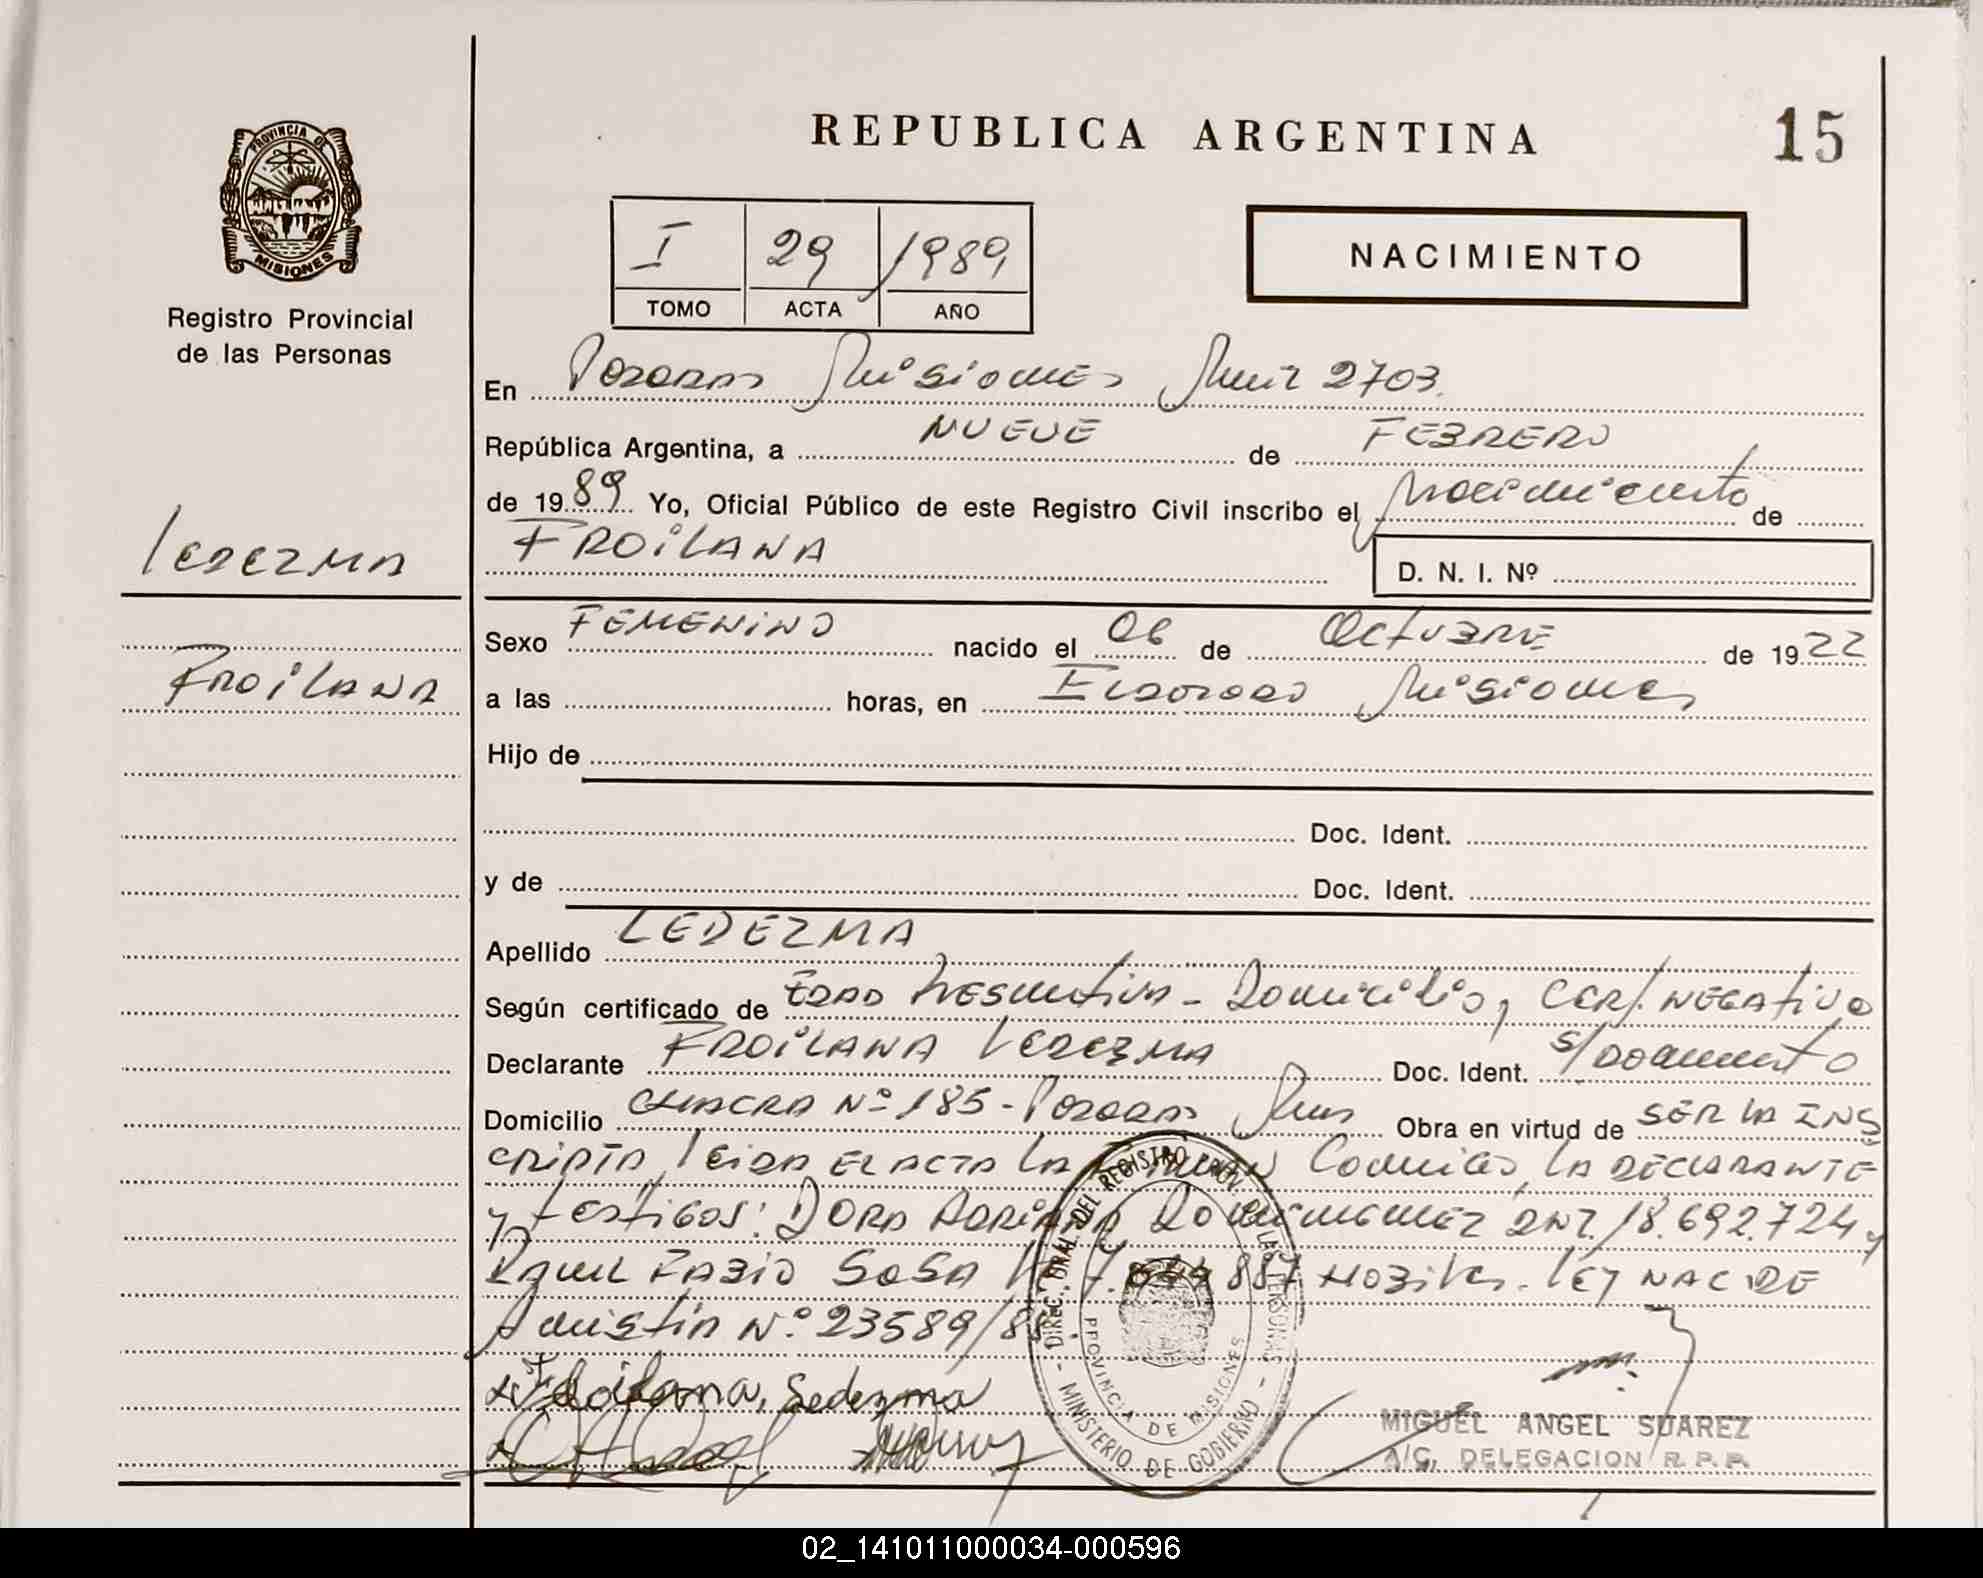 REPUBLICA ARGENTINA
15
PROVINCIA DE
MISIONES
Registro Provincial
de las Personas
I 29 1989
TOMO ACTA AÑO
NACIMIENTO
En Posadas Misiones 2703.
República Argentina, a NUEVE de FEBRERO
de 1989 Yo, Oficial Público de este Registro Civil inscribo el Nacimiento de
FROILANA
D. N. I. Nº
Ledezma
Froilana
Sexo FEMENINO nacido el 06 de Octubre de 1922
a las horas, en Eldorado Misiones
Hijo de
Doc. Ident.
y de Doc. Ident.
Apellido LEDEZMA
Según certificado de Edad Presuntiva - Domicilio, Cert. Negativo
Declarante FROILANA Ledezma Doc. Ident. s/Documento
Domicilio CHACRA Nº 185 - Posadas Mnes Obra en virtud de SER LA INS
CRIPTA, Leida EL ACTA La Firman Conmigo, LA DECLARANTE
y testigos: DORA Adriana DNI. 18.692.724 y
Raul Fabio SOSA 887 LEY NAC DE
Amnistia Nº 23589/88.
Froilana, Ledezma
DIREC. GRAL. DEL REGISTRO PROV. DE LAS PERSONAS
PROVINCIA DE MISIONES
- MINISTERIO DE GOBIERNO -
MIGUEL ANGEL SUAREZ
A/C. DELEGACION R.P.P.
02_141011000034-000596